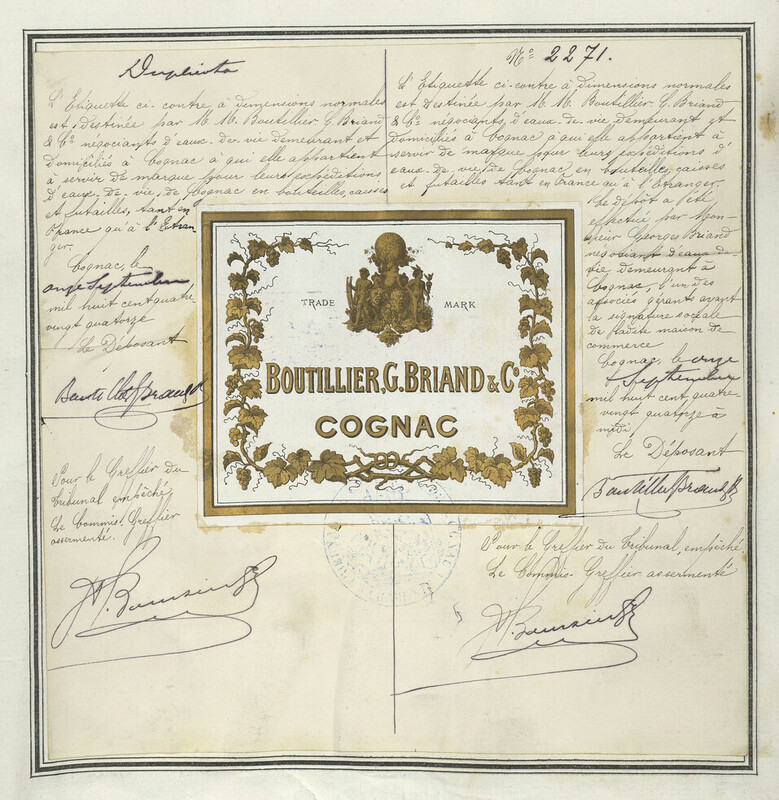 Duplicata
L'Etiquette ci-contre à dimensions normales
est, destinée par M. M. Boutillier. G. Briand
& Cº. négociants d'eaux-de-vie demeurant et
domiciliés à Cognac à qui elle appartient
à servir de marque pour leurs expéditions
d'eaux-de-vie, de Cognac en bouteilles, caisses
et futailles, tant en
France qu'à l'Etran
ger.
Cognac, le
onze Septembre
mil huit cent quatre
vingt quatorze
Le Déposant
Pour le Greffier du
Tribunal empêché
Le Commis. Greffier
assermenté.
Nº 2271.
L'Etiquette ci-contre à dimensions normales
est destinée par M. M. Boutillier. G. Briand
& Cº. négociants, d'eaux-de-vie, demeurant et
domiciliés à Cognac à qui elle appartient à
servir de marque pour leurs expéditions d'
eaux-de-vie, de Cognac en bouteilles, caisses
et futailles tant en France qu'à l'Etranger.
Le dépôt a été
effectué par Mon-
sieur Georges Briand
négociant d'eaux-de-
vie, demeurant à
Cognac, l'un des
associés gérants ayant
la signature sociale
de ladite maison de
commerce
Cognac, le onze
Septembre
mil huit cent quatre-
vingt quatorze à
midi
Le Déposant
Pour le Greffier du Tribunal, empêché
Le Commis-Greffier assermenté
TRADE MARK
BOUTILLIER, G. BRIAND & Cº
COGNAC